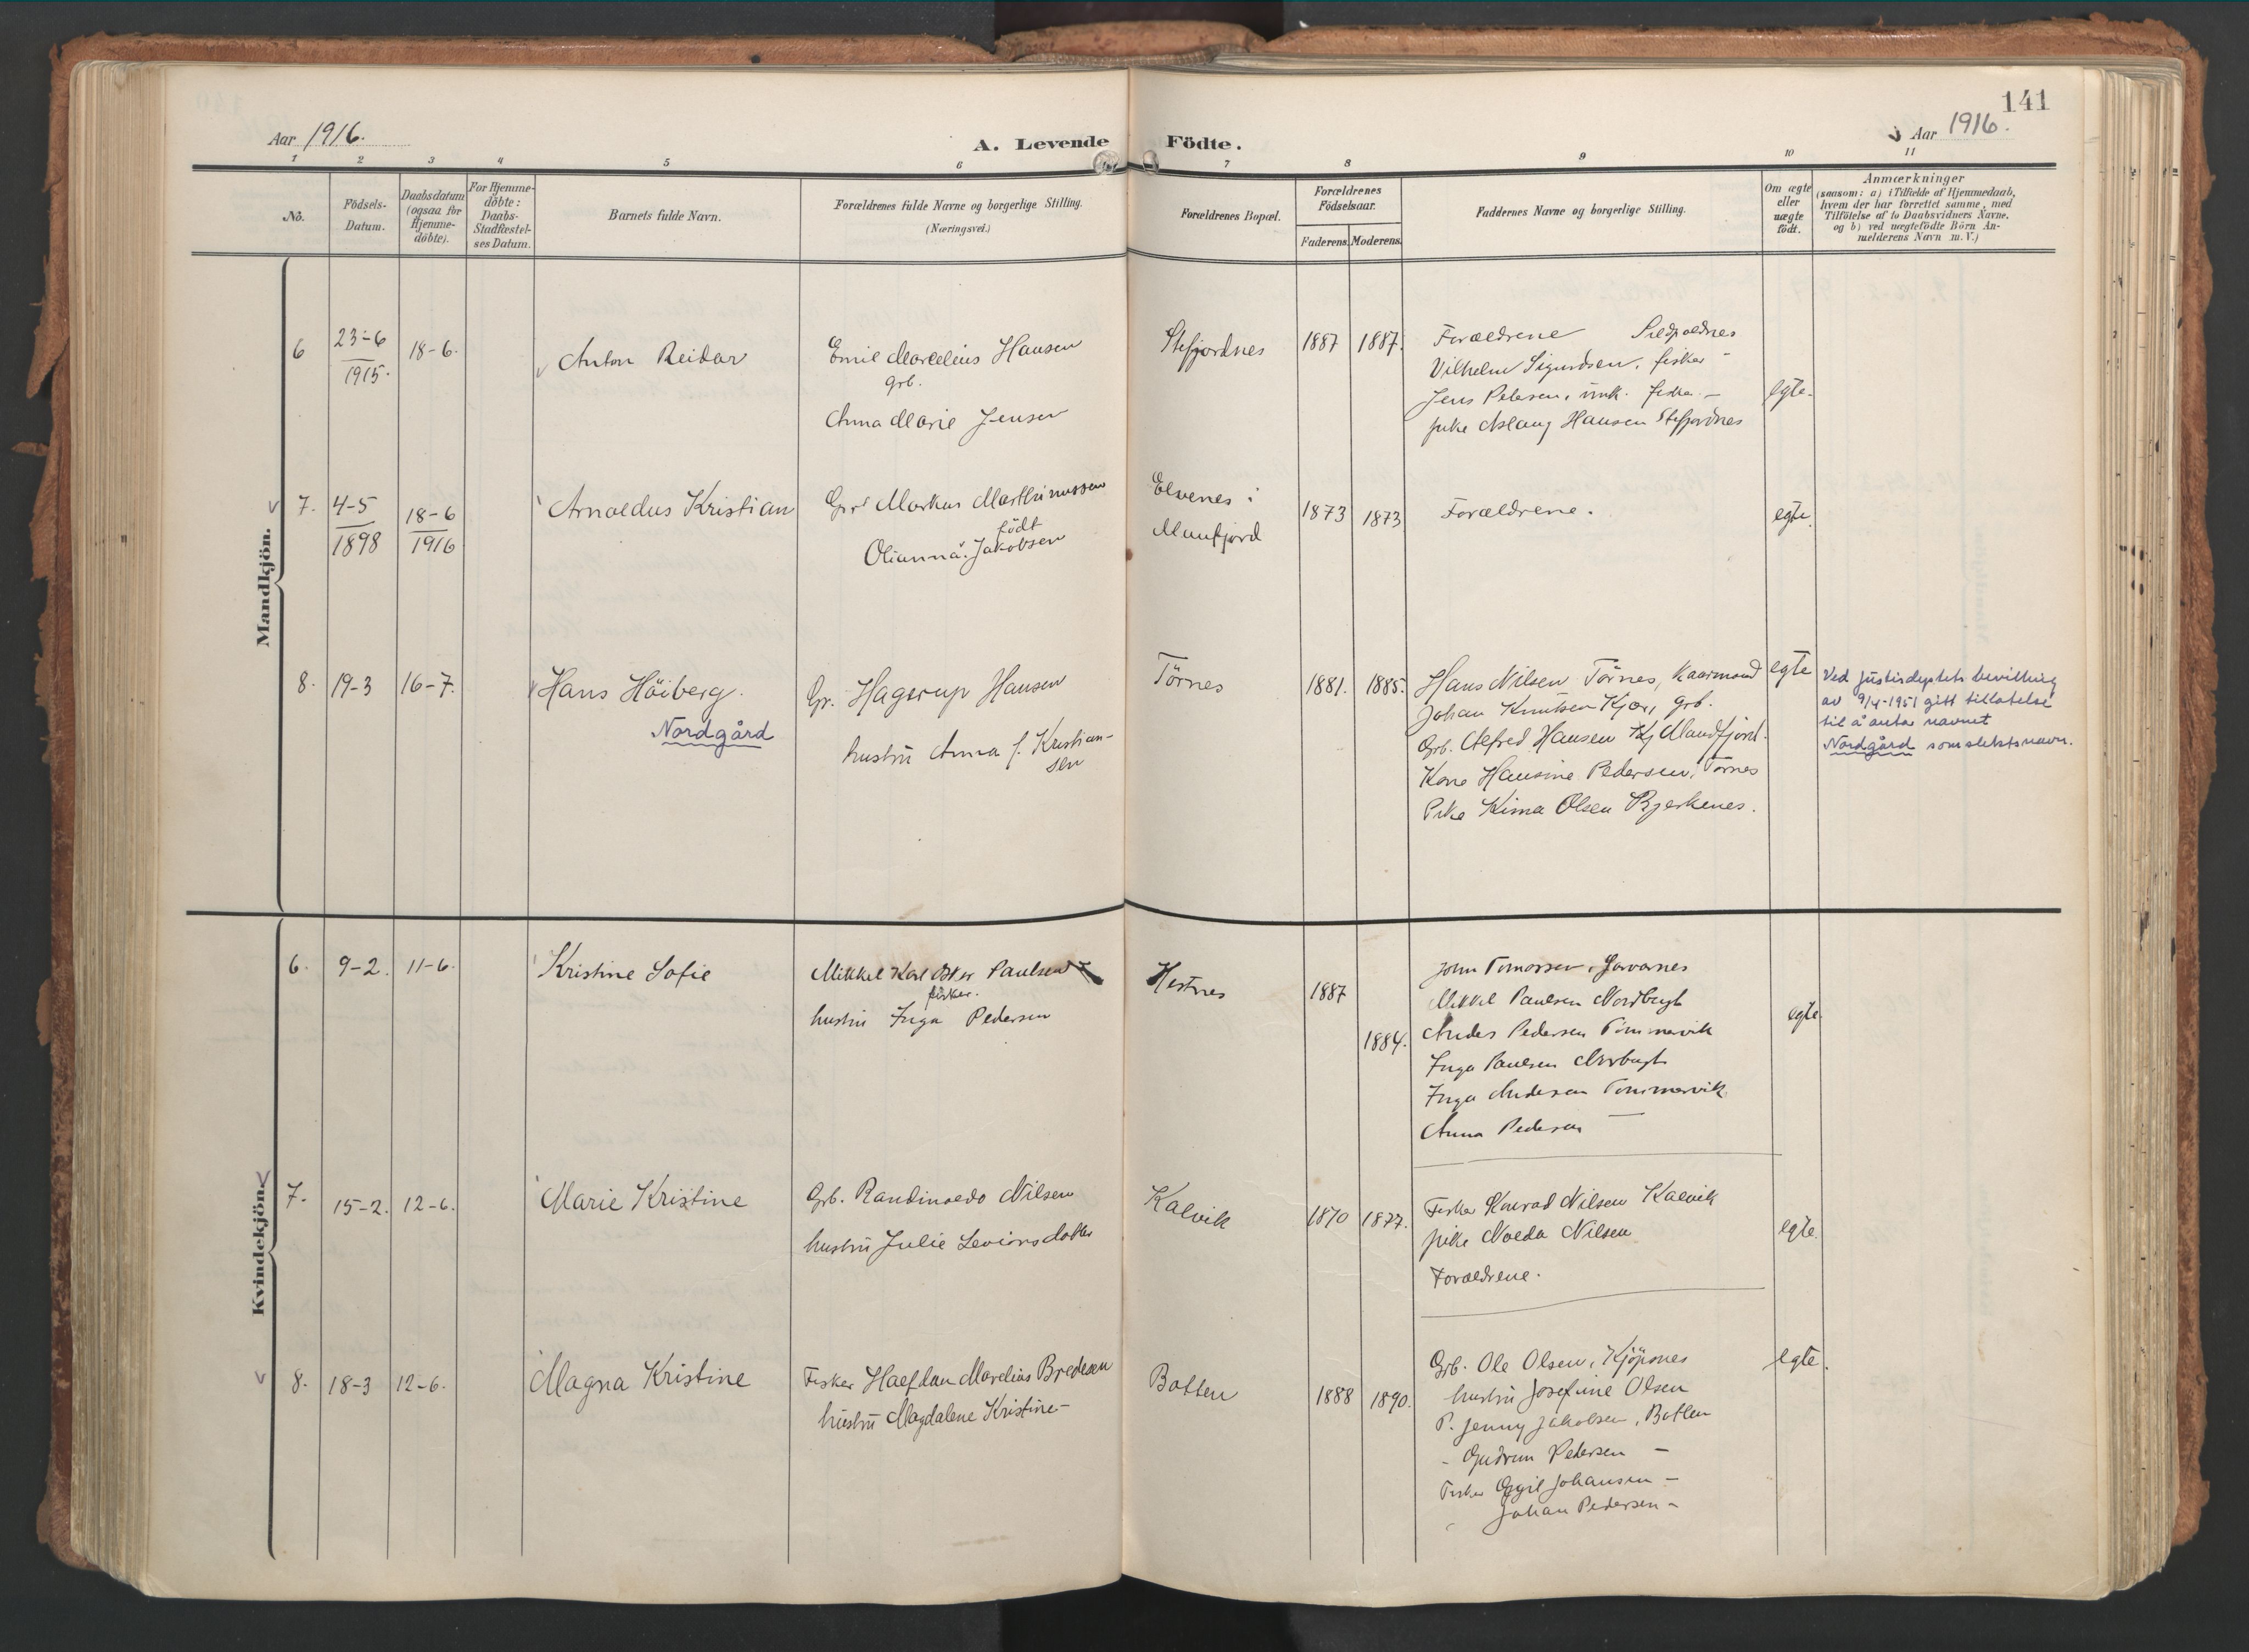 141
Aar 1916.
A. Levende Födte.
Aar 1916.
1 2 3 4 5 6 7 8 9 10 11
No.
Födsels-
Datum.
Daabsdatum
(ogsaa for
Hjemme-
döbte).
For Hjemme-
döbte:
Daabs-
Stadfæstel-
ses Datum.
Barnets fulde Navn.
Forældrenes fulde Navne og borgerlige Stilling.
(Næringsvei.)
Forældrenes Bopæl.
Forældrenes
Födselsaar.
Faderens. Moderens.
Faddernes Navne og borgerlige Stilling.
Om ægte
eller
uægte
födt.
Anmærkninger
(saasom: a) i Tilfælde af Hjemmedaab,
hvem der har forrettet samme, med
Tilföielse af to Daabsvidners Navne.
og b) ved uægtefödte Börn An-
melderens Navn m. V.)
Mandkjön.
6
23-6
1915.
18-6.
Anton Reidar
Emil Marcelius Hansen
grb.
Anna Marie Jensen
Stefjordnes
1887 1887.
Forældrene
Vilhelm Sigurdsen, fisker -
Jens Petersen, fisker -
pike Aslaug Hansen Stefjordnes
egte.
7.
4-5
1898
18-6
1916
Arnoldus Kristian
Markus Marthinussen
födt
Olianna Jakobsen
Elvenes i
Manfjord
1873 1873
Forældrene.
egte.
8.
19-3
16-7.
Hans Höiberg.
Nordgård
Gr. Hagerup Hansen
hustru Anna f. Kristian-
sen
Törnes
1881. 1885.
Hans Nilsen Törnes, Kaarmand
Johan Knutsen Kjær, grb.
Grb. Alfred Hansen Mandfjord.
Kone Hansine Pedersen, Törnes
Pike Kima Olsen Bjerkenes.
egte
Ved justisdeptets bevilling
av 9/4-1951 gitt tillatelse
til å anta navnet
Nordgård som slektsnavn.
Kvindekjön.
6.
9-2.
11-6.
Kristine Sofie
Mikkel Karl Oskar Paulsen
fisker.
hustru Inga Pedersen
Hestnes
1887
1884.
John Tomassen,
Mikkel Paulsen Nordbugt
Anders Pedersen Tömmervik
Inga Paulsen Norbugt
Inga Andersen Tömmervik
Anna Pedersen —
egte
7.
15-2.
12-6.
Marie Kristine
Grb. Randinoedo Nilsen
hustru Julie Levionsdatter
Kalvik
1870 1877.
Fisker Konrad Nilsen Kalvik
pike Nolda Nilsen
Forældrene.
egte
8.
18-3
12-6.
Magna Kristine
Fisker Halfdan Marelius Bredesen
hustru Magdalene Kristine -
Botten
1888 1890.
Grb. Ole Olsen, Kjöpsnes
hustru Josefine Olsen
P. Jenny Jakobsen, Botten
- Gudrun Pedersen -
Fisker Johansen -
Johan Pedersen -
egte.